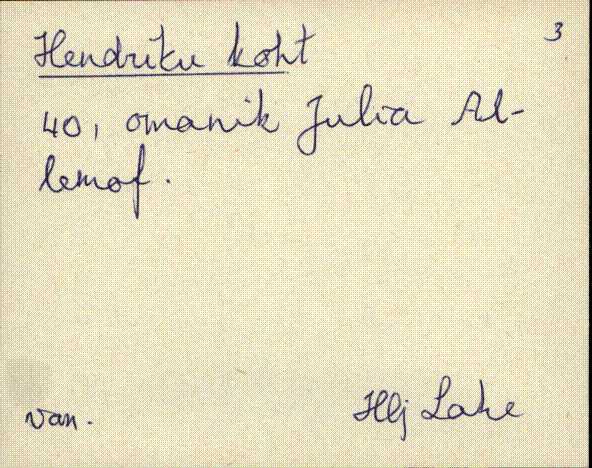 3
Hendriku koht
40, omanik Julia Al-
lemof.
van. Hlj Lake